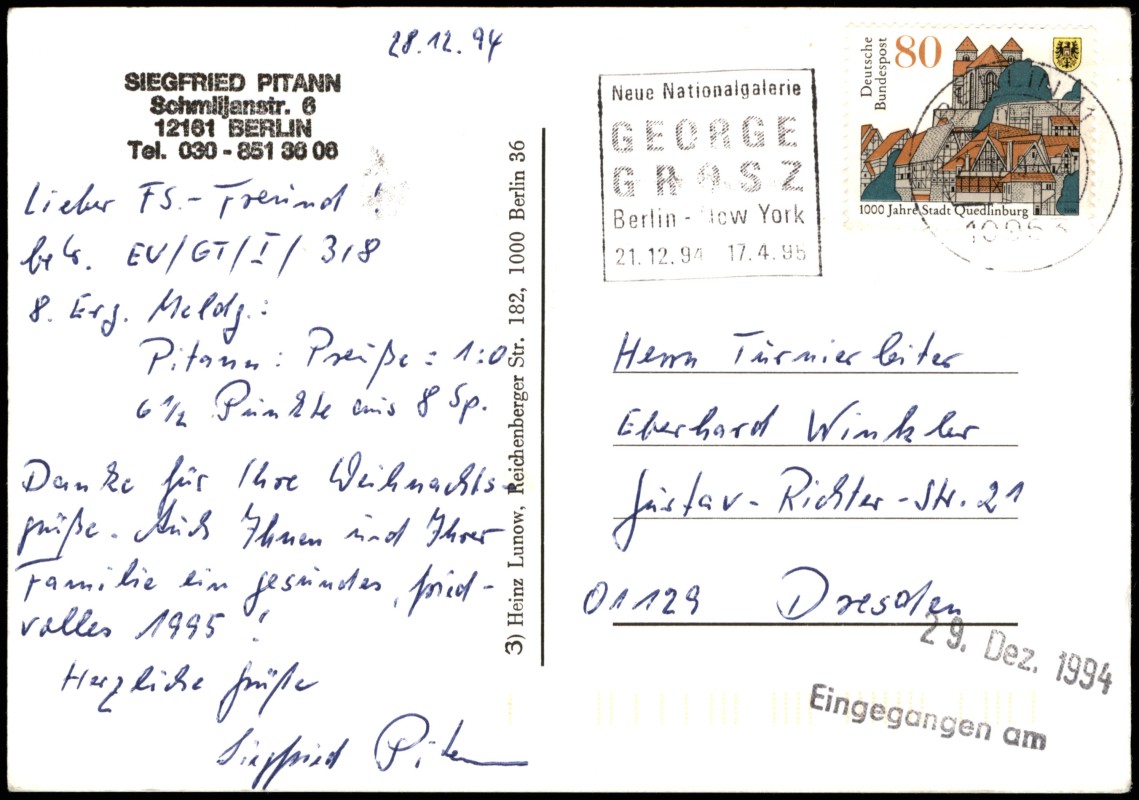 28.12.94
SIEGFRIED PITANN
Schmiljanstr. 6
12161 BERLIN
Tel. 030 - 851 36 06
Lieber FS.-Freund!
betr. EU/GT/I/318
8. Erg. Meldg.:
Pitann : Preuße = 1:0
6 1/2 Punkte aus 8 Sp.
Danke für Ihre Weihnachts-
grüße. Auch Ihnen und Ihrer
Familie ein gesundes, fried-
volles 1995!
Herzliche Grüße
Siegfried Pitann
3) Heinz Lunow, Reichenberger Str. 182, 1000 Berlin 36
Neue Nationalgalerie
GEORGE
GROSZ
Berlin - New York
21.12.94 17.4.95
Deutsche
Bundespost
80
1000 Jahre Stadt Quedlinburg
Herrn Turnierleiter
Eberhard Winkler
Gustav-Richter-Str. 21
01129 Dresden
29. Dez. 1994
Eingegangen am